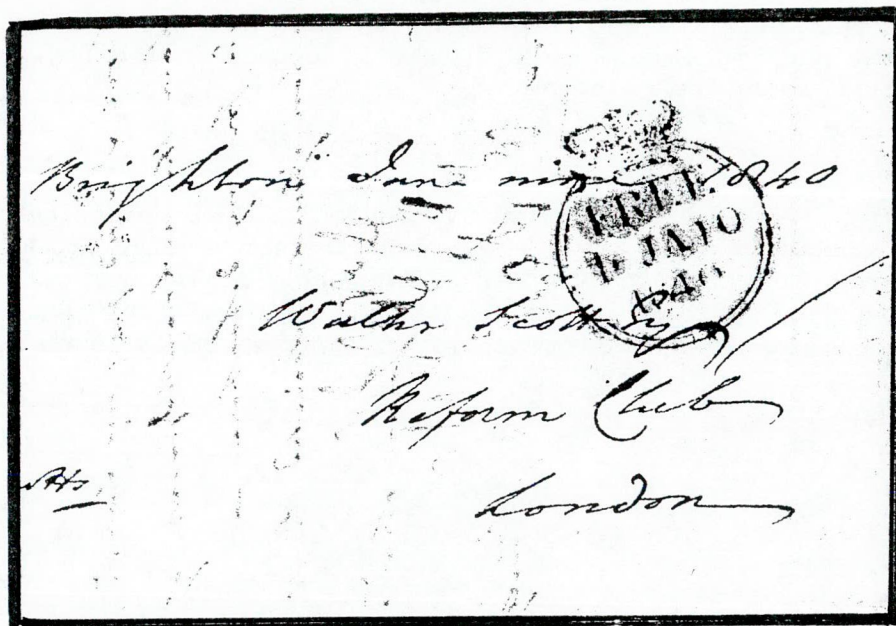 Brighton Jan nine 1840
FREE
JA 10
1840
Walter Scott Esq
Reform Club
London